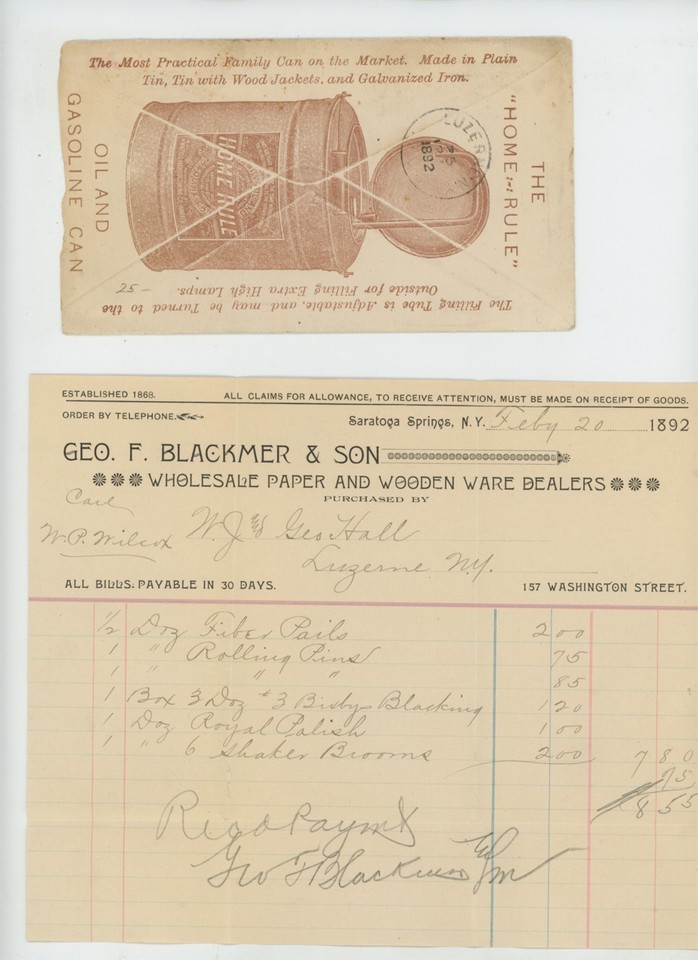 The Most Practical Family Can on the Market. Made in Plain
Tin, Tin with Wood Jackets, and Galvanized Iron.
OIL AND
GASOLINE CAN
HOME RULE
LUZERNE
1892
THE
"HOME RULE"
The Filling Tube is Adjustable, and may be Turned to the
Outside for Filling Extra High Lamps.
25-
ESTABLISHED 1868.
ALL CLAIMS FOR ALLOWANCE, TO RECEIVE ATTENTION, MUST BE MADE ON RECEIPT OF GOODS.
ORDER BY TELEPHONE.
Saratoga Springs, N.Y. Feby 20 1892
GEO. F. BLACKMER & SON
WHOLESALE PAPER AND WOODEN WARE DEALERS
PURCHASED BY
Care
W.P. Wilcox
W. J. & Geo Hall
Luzerne N.Y.
ALL BILLS PAYABLE IN 30 DAYS.
157 WASHINGTON STREET.
1/2 Doz Fiber Pails 2 00
1 " Rolling Pins 75
1 " " " 85
1 Box 3 Doz #3 Bixbys Blacking 1 20
1 Doz Royal Polish 1 00
1 " 6 Shaker Brooms 2 00 7 80
75
8 55
Recd Paymt
Geo F Blackmer